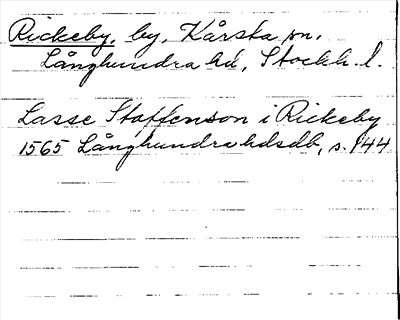 Rickeby, by, Kårsta sn,
Långhundra hd, Stockh. l.
Lasse Staffenson i Rickeby
1565 Långhundra hdsdb, s. 144